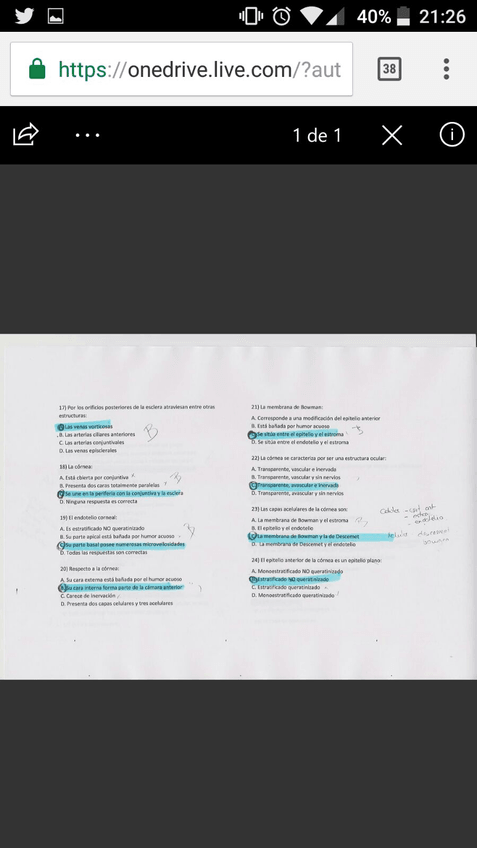 40% 21:26
https://onedrive.live.com/?aut 38
1 de 1
17) Por los orificios posteriores de la esclera atraviesan entre otras
estructuras:
Las venas vorticosas
B. Las arterias ciliares anteriores
C. Las arterias conjuntivales
D. Las venas episclerales
B
La córnea:
A. Está cubierta por conjuntiva
B. Presenta dos caras totalmente paralelas
Se une en la periferia con la conjuntiva y la esclera
D. Ninguna respuesta es correcta
19) El endotelio corneal:
A. Es estratificado NO queratinizado
B. Su parte apical está bañada por humor acuoso
Su parte basal posee numerosas microvellosidades
D. Todas las respuestas son correctas
20) Respecto a la córnea:
A. Su cara externa está bañada por el humor acuoso
Su cara interna forma parte de la cámara anterior
C. Carece de inervación
D. Presenta dos capas celulares y tres acelulares
21) La membrana de Bowman:
A. Corresponde a una modificación del epitelio anterior
B. Está bañada por humor acuoso
Se sitúa entre el epitelio y el estroma
D. Se sitúa entre el endotelio y el estroma
22) La córnea se caracteriza por ser una estructura ocular:
A. Transparente, vascular e inervada
B. Transparente, vascular y sin nervios
Transparente, avascular e inervada
D. Transparente, avascular y sin nervios
23) Las capas acelulares de la córnea son:
A. La membrana de Bowman y el estroma
B. El epitelio y el endotelio
La membrana de Bowman y la de Descemet
D. La membrana de Descemet y el endotelio
24) El epitelio anterior de la córnea es un epitelio plano:
A. Monoestratificado NO queratinizado
Estratificado NO queratinizado
C. Estratificado queratinizado
D. Monoestratificado queratinizado